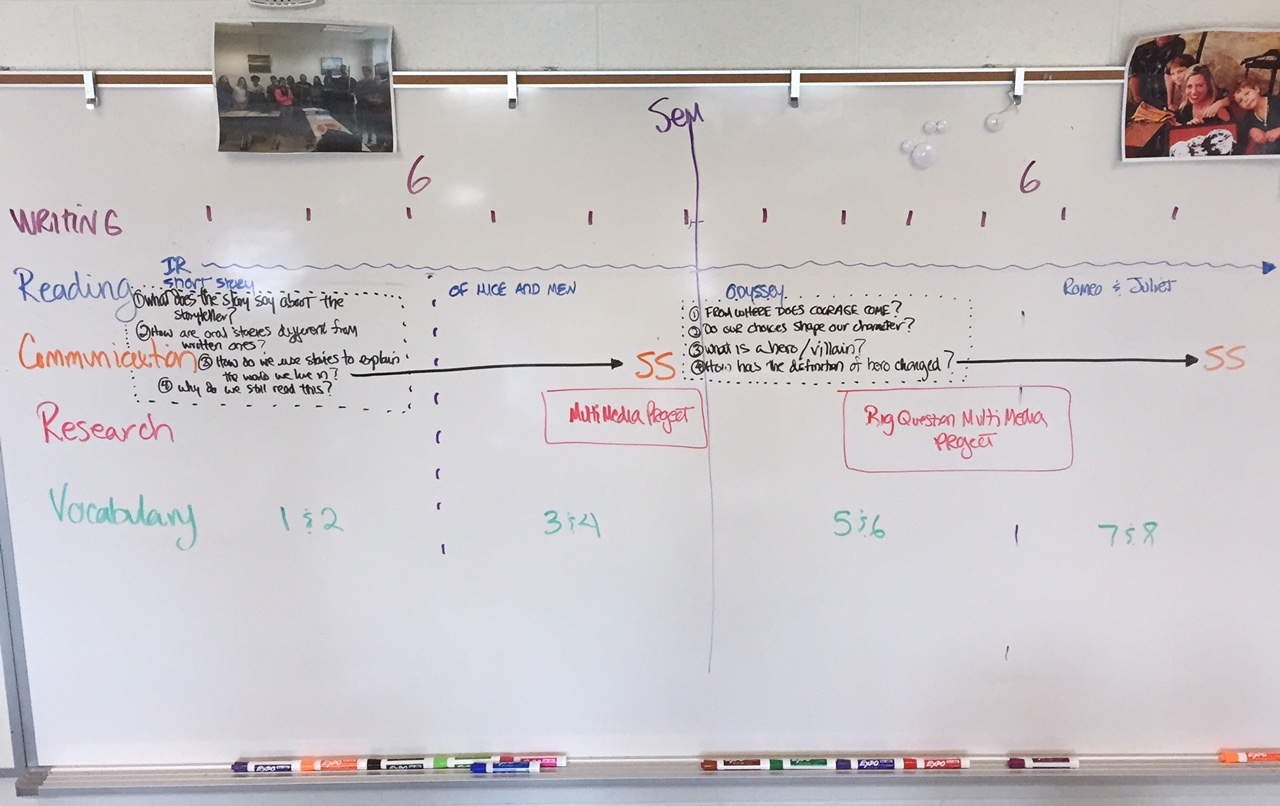 Sem
6
6
WRITING
IR
Reading
short story
OF MICE AND MEN
Odyssey
Romeo & Juliet
① What does the story say about the
storyteller?
② How are oral stories different from
written ones?
③ How do we use stories to explain
the world we live in?
④ Why do we still read this?
① FROM WHERE DOES COURAGE COME?
② Do our choices shape our character?
③ What is a hero/villain?
④ How has the definition of hero changed?
Communication
SS
SS
Research
MultiMedia Project
Big Question MultiMedia
PRoject
Vocabulary
1 & 2
3 & 4
5 & 6
7 & 8
EXPO
EXPO
EXPO
EXPO
EXPO